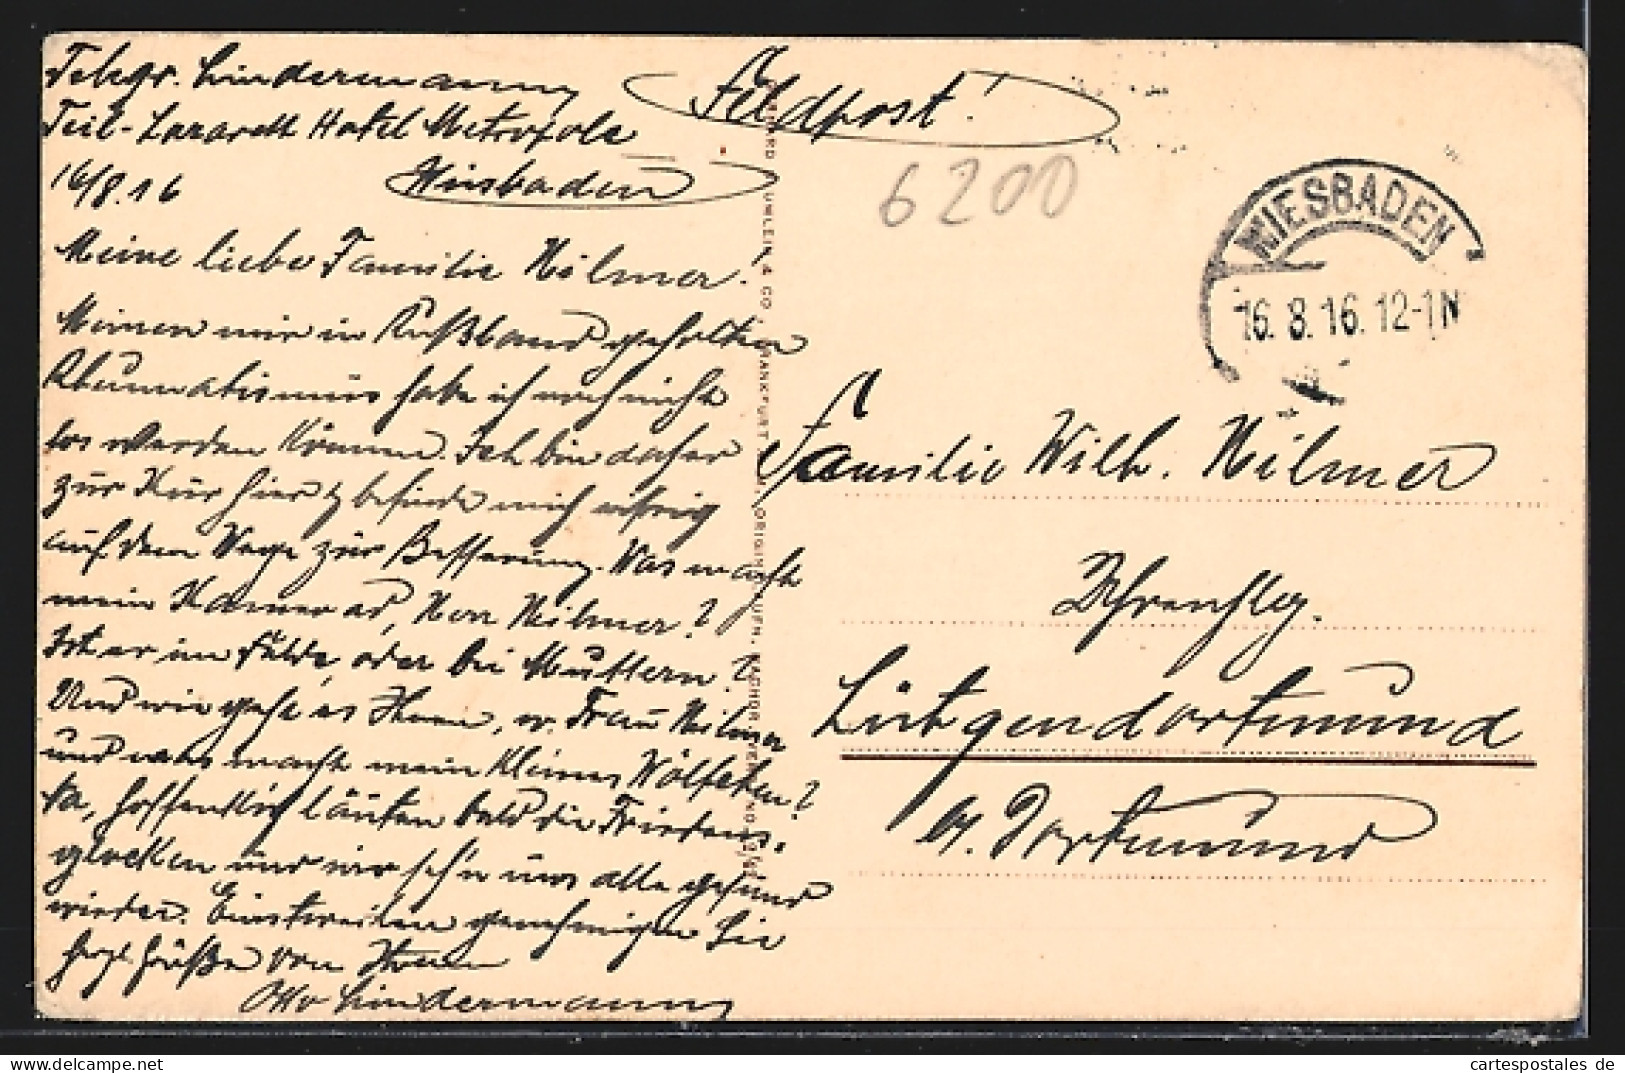 Telegr. Lindermann
Teil-Lazarett Hotel Metropole
16/8.16 Wiesbaden
Feldpost!
6200
WIESBADEN
16.8.16.12-1N
Meine liebe Familie Hilmer!
Meinen mir in Rußland geholten
Rheumatismus habe ich noch nicht
los werden können. Ich bin daher
zur Kur hier & befinde mich
auf dem Wege zur Besserung. Was macht
mein Kamerad, Herr Hilmer?
Ist er im Felde, oder bei Muttern?
Und wie geht es Ihnen, w. Frau Hilmer
und was macht mein kleines Wölfchen?
Na, hoffentlich läuten bald die Friedens-
glocken und wir seh'n uns alle gesund
wieder. Einstweilen genehmigen Sie
herzl. Grüße von Ihrem
Otto Lindermann
Familie Wilh. Hilmer
Lütgendortmund
b. Dortmund
cartespostales de